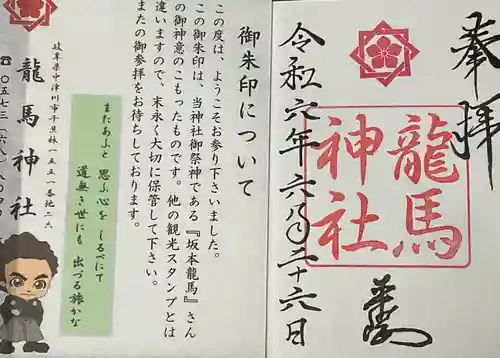 奉拝
龍馬
神社
令和六年六月二十六日
御朱印について
この度は、ようこそお参り下さいました。
この御朱印は、当神社御祭神である『坂本龍馬』さん
の御神意のこもったものです。他の観光スタンプとは
違いますので、末永く大切に保管して下さい。
またの御参拝をお待ちしております。
またあふと 思ふ心を しるべにて
道無き世にも 出づる旅かな
岐阜県中津川市千旦林一五五一番地二六
龍馬神社